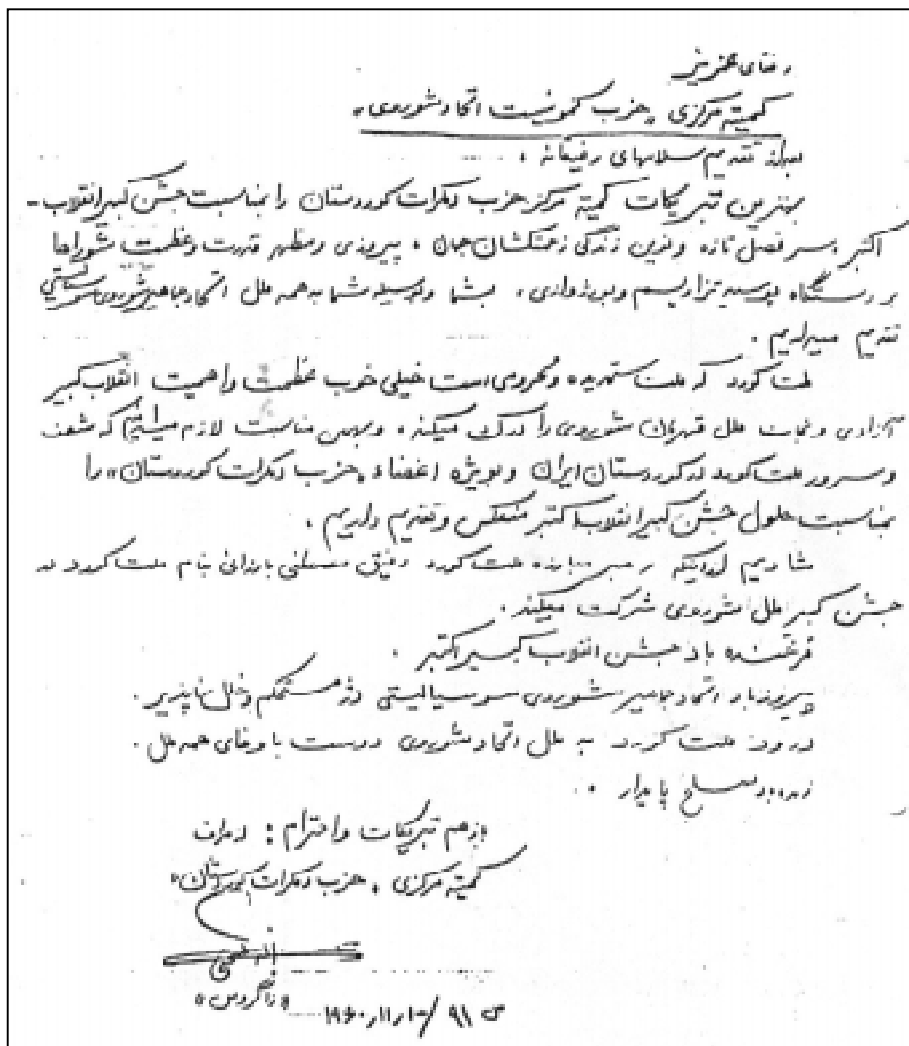 رفقای عزیز
کمیته مرکزی «حزب کمونیست اتحاد شوروی»
بعد از تقدیم سلامهای رفیقانه ،
بهترین تبریکات کمیته مرکز حزب دمکرات کوردستان را بمناسبت جشن کبیر انقلاب -
اکتبر سر فصل تازه و نوین زندگی زحمتکشان جهان ، پیروزی و مظهر قدرت و عظمت شوراها
بر دستگاه پوسیده تزاریسم و بورژوازی ، بشما و بوسیله شما به همه ملل اتحاد جماهیر شوروی سوسیالیستی
تقدیم میداریم .
ملت کورد که ملت ستمدیده و محرومی است خیلی خوب عظمت و اهمیت انقلاب کبیر
آزادی و نجات ملل قهرمان شوروی را درک میکند ، و بهمین مناسبت لازم میدانیم که شعف
و سرور ملت کورد در کوردستان ایران و بویژه اعضاء «حزب دمکرات کوردستان» را
بمناسبت حلول جشن کبیر انقلاب اکتبر منعکس و تقدیم داریم .
شادیم از اینکه رهبر مبارزه ملت کورد رفیق مصطفی بارزانی بنام ملت کورد در
جشن کبیر ملل شوروی شرکت میکند .
فرخنده باد جشن انقلاب کبیر اکتبر .
پیروز باد اتحاد جماهیر شوروی سوسیالیستی دژ مستحکم و خلل ناپذیر .
درود ملت کورد به ملل اتحاد شوروی دوست با وفای همه ملل .
زنده باد صلح پایدار .
باز هم تبریکات و احترام : از طرف
کمیته مرکزی «حزب دمکرات کوردستان»
«زاگروس»
ص ۹۱ /